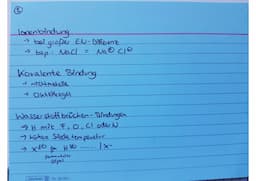 Ionenbindung
→ bei großer EN-Differenz
→ bsp: NaCl = Na⊕ Cl⊖
Kovalente Bindung
→ Nichtmetalle
→ Oktettregel
Wasserstoffbrücken-Bindungen
→ H mit F, O, Cl oder N
→ hohe Siedetemperatur